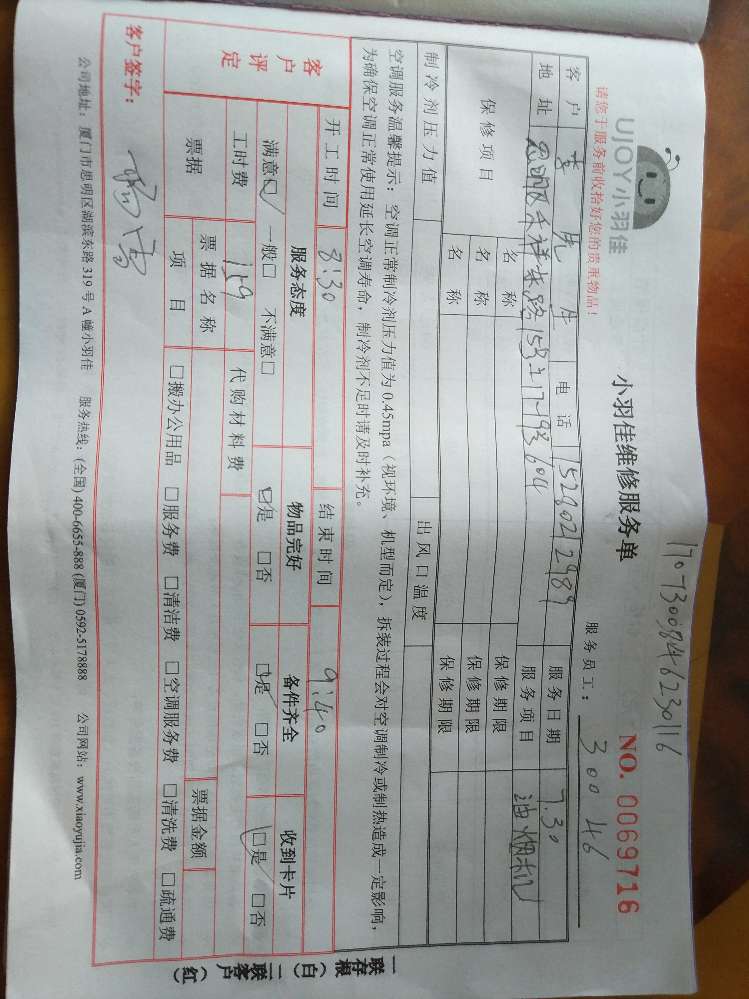 1707300846230116
UJOY小羽佳
小羽佳维修服务单
NO. 0069716
请您于服务前收拾好您的贵重物品！
服务员工： 30046
客户 李先生 电话 15280212989 服务日期 7.30
地址 思明区禾祥东路153-217-193 604 服务项目 油烟机
保修项目 名称 保修期限
名称 保修期限
名称 保修期限
制冷剂压力值 出风口温度
空调服务温馨提示：空调正常制冷剂压力值为 0.45mpa（视环境、机型而定），拆装过程会对空调制冷或制热造成一定影响，
为确保空调正常使用延长空调寿命，制冷剂不足时请及时补充。
开工时间 8:30 结束时间 9:40
客户评定 服务态度 物品完好 备件齐全 收到卡片
满意☑ 一般□ 不满意□ ☑是 □否 ☑是 □否 ☑是 □否
工时费 159 代购材料费
票据 票据名称 票据金额
项目 □搬办公用品 □服务费 □清洁费 □空调服务费 □清洗费 □疏通费
客户签字：
公司地址：厦门市思明区湖滨东路 319 号 A 幢小羽佳 服务热线：(全国) 400-6655-888 (厦门) 0592-5178888 公司网站：www.xiaoyujia.com
一联存根（白）二联客户（红）